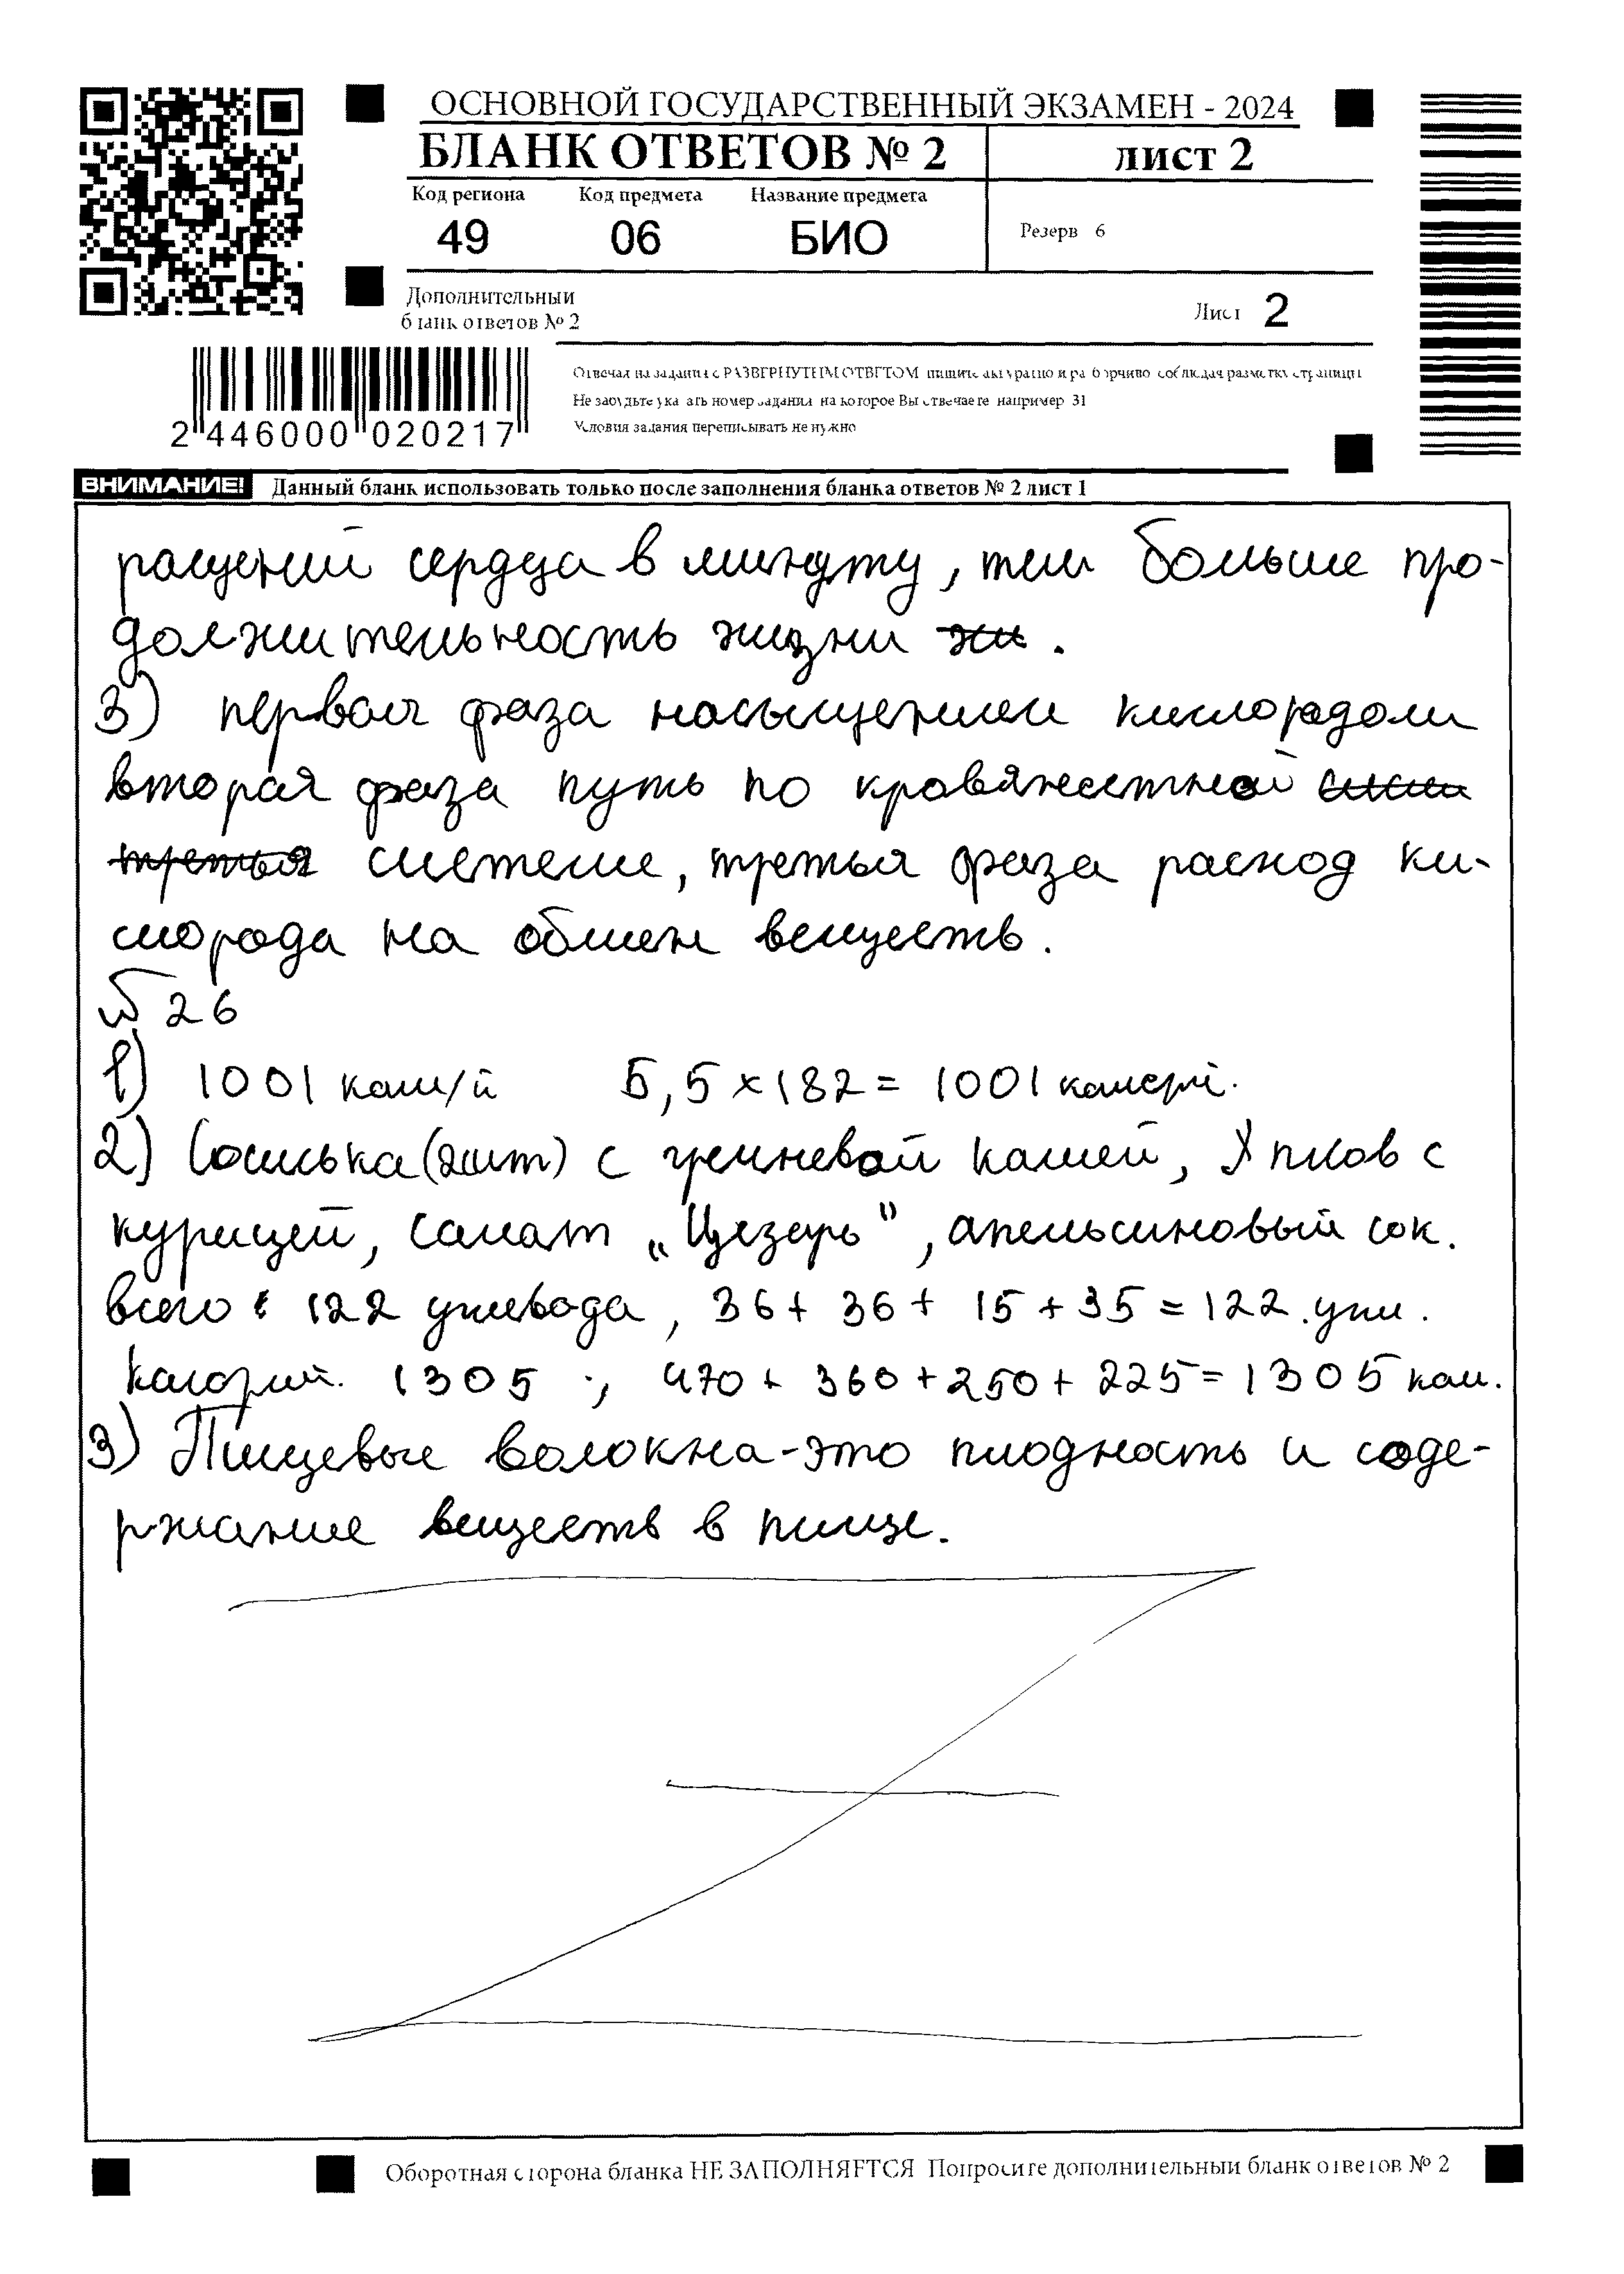 ОСНОВНОЙ ГОСУДАРСТВЕННЫЙ ЭКЗАМЕН - 2024
БЛАНК ОТВЕТОВ № 2
лист 2
Код региона
Код предмета
Название предмета
49
06
БИО
Резерв 6
Дополнительный
бланк ответов № 2
Лист 2
Отвечая на задания с РАЗВЕРНУТЫМ ОТВЕТОМ пишите аккуратно и разборчиво соблюдая разметку страницы
Не забудьте указать номер задания на которое Вы отвечаете например 31
Условия задания переписывать не нужно
2 446000 020217
ВНИМАНИЕ! Данный бланк использовать только после заполнения бланка ответов № 2 лист 1
ращений сердца в минуту, тем больше про-
должительность жизни жи.
3) первая фаза насыщением кислорадом
вторая фаза путь по кровяностной сист
третья системе, третья фаза расход ки-
слорода на обмен веществ.
№ 26
1) 1001 кал/й 5,5 х 182 = 1001 калорй.
2) Сосиська (2шт) с гречневой кашей, Х плов с
курицей, салат „Цезарь", апельсиновый сок.
всего : 122 углевода, 36+ 36+ 15 +35 = 122.угл.
калорий. 1305 ; 470+ 360+250+ 225= 1305 кал.
3) Пищевые волокна-это плодность и соде-
ржание веществ в пище.
Оборотная сторона бланка НЕ ЗАПОЛНЯЕТСЯ Попросите дополнительный бланк ответов № 2